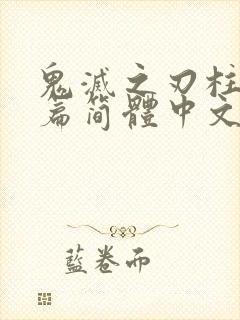 鬼滅之刃柱
篇简體中文
藍卷而